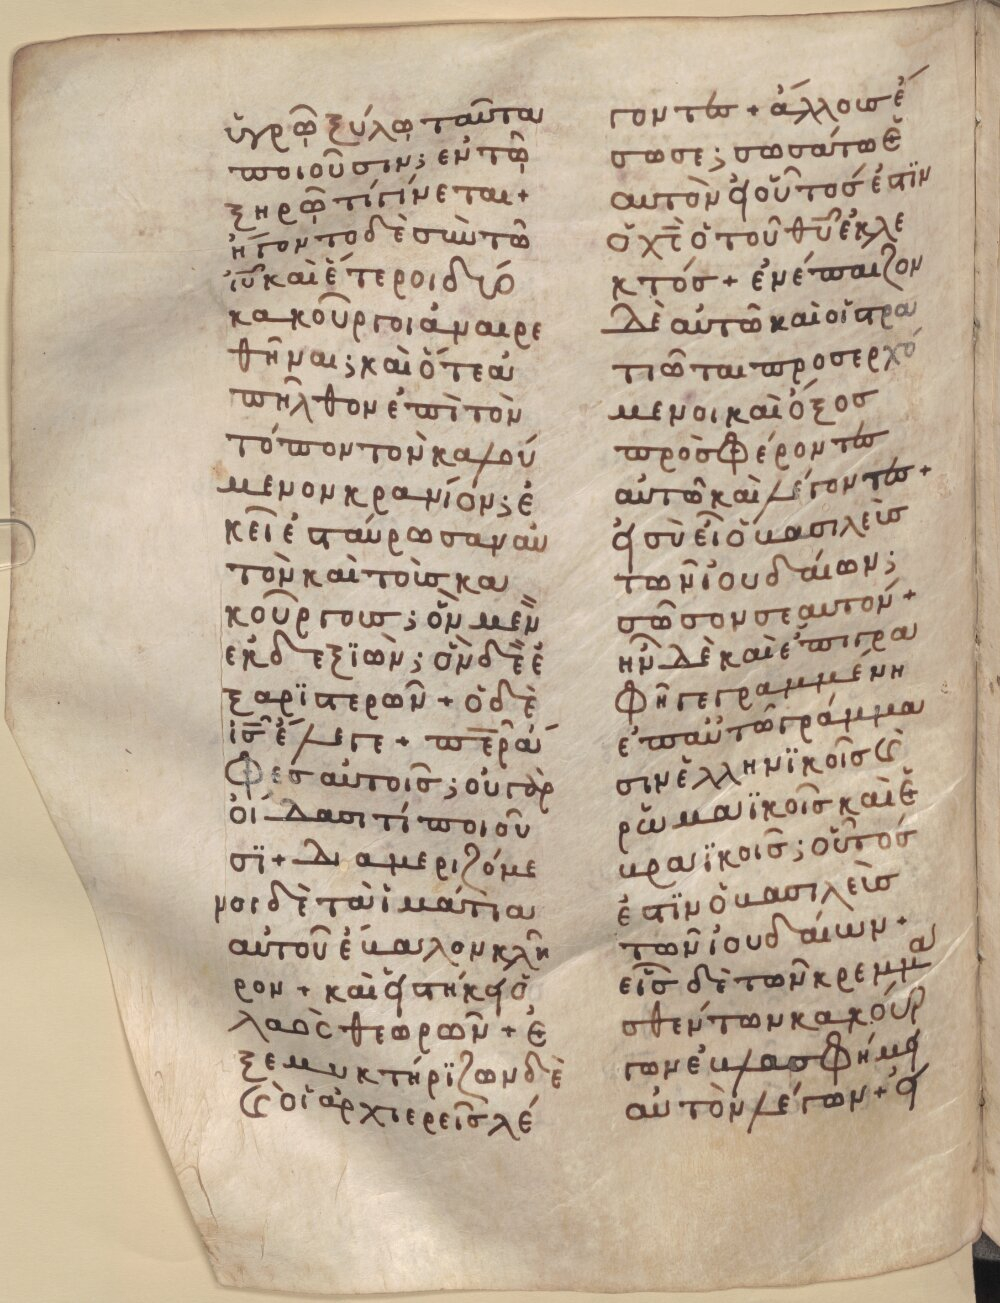 ὑγρῶ ξύλω ταῦτα
ποιοῦσιν; ἐν τῶ
ξηρῶ τί γίνεται +
ἤγοντο δὲ σὺν τῶ
ἰ̅υ̅ καὶ ἕτεροι δύο
κακοῦργοι ἀναιρε
θῆναι; καὶ ὅτε ἀ
πῆλθον ἐπὶ τὸν
τόπον τὸν καλού
μενον κρανίον; ἐ
κεῖ ἐσταύρωσαν αὐ
τὸν καὶ τοὺς κα
κοῦργους; ὃν μὲν
ἐκ δεξϊῶν; ὃν δὲ ἐ
ξ ἀρϊστερῶν + ὁ δὲ
ι̅ς̅ ἔλεγε + π̅ε̅ρ̅ ἄ
φες αὐτοῖς; οὐ γὰρ
οἴδασι τί ποιοῦ
σϊ + διαμεριζόμε
νοι δὲ τὰ ἱμάτια
αὐτοῦ ἔβαλον κλῆ
ρον + καὶ εἱστήκει ὁ
λαὸς θεωρῶν + ἐ
ξεμυκτήρϊζων δὲ
ϗ οἱ ἀρχιερεῖς λέ
γοντες + ἄλλους ἔ
σωσε; σωσάτω ἑ
αυτὸν εἰ οὗτός ἐστϊν
ὁ χ̅ς̅ ὁ τοῦ θ̅υ̅ ἐκλε
κτός + ἐνέπαιζον
δὲ αὐτῶ καὶ οἱ στρα
τιῶται προσερχό
μενοι καὶ ὄξος
πρὸσφέροντες
αὐτῶ καὶ λέγοντες +
εἰ σὺ εἶ ὁ βασιλεὺς
τῶν ἰουδαίων;
σῶσον σεαυτόν +
ἦν δὲ καὶ ἐπιγρα
φῆ γεγραμμένη
ἐπ αὐτῶ γράμμα
σιν ἑλληνϊκοῖς ϗ
ῥωμαϊκοῖς καὶ ἑ
βραϊκοῖς; οὗτός
ἐστϊν ὁ βασιλεὺς
τῶν ἰουδαίων +
εἷς δὲ τῶν κρεμμα
σθέντων κακούρ
γων ἐβλασφήμει
αὐτὸν λέγων + εἰ